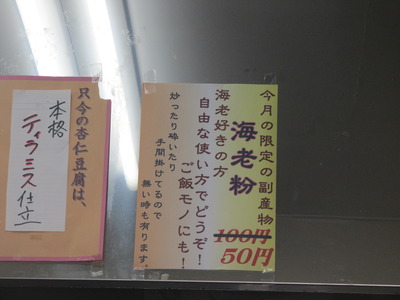 今月の限定の副産物
海老粉
100円
50円
海老好きの方
自由な使い方でどうぞ!
ご飯モノにも!
炒ったり砕いたり
手間掛けてるので
無い時も有ります。
只今の杏仁豆腐は、
本格
ティラミス仕立